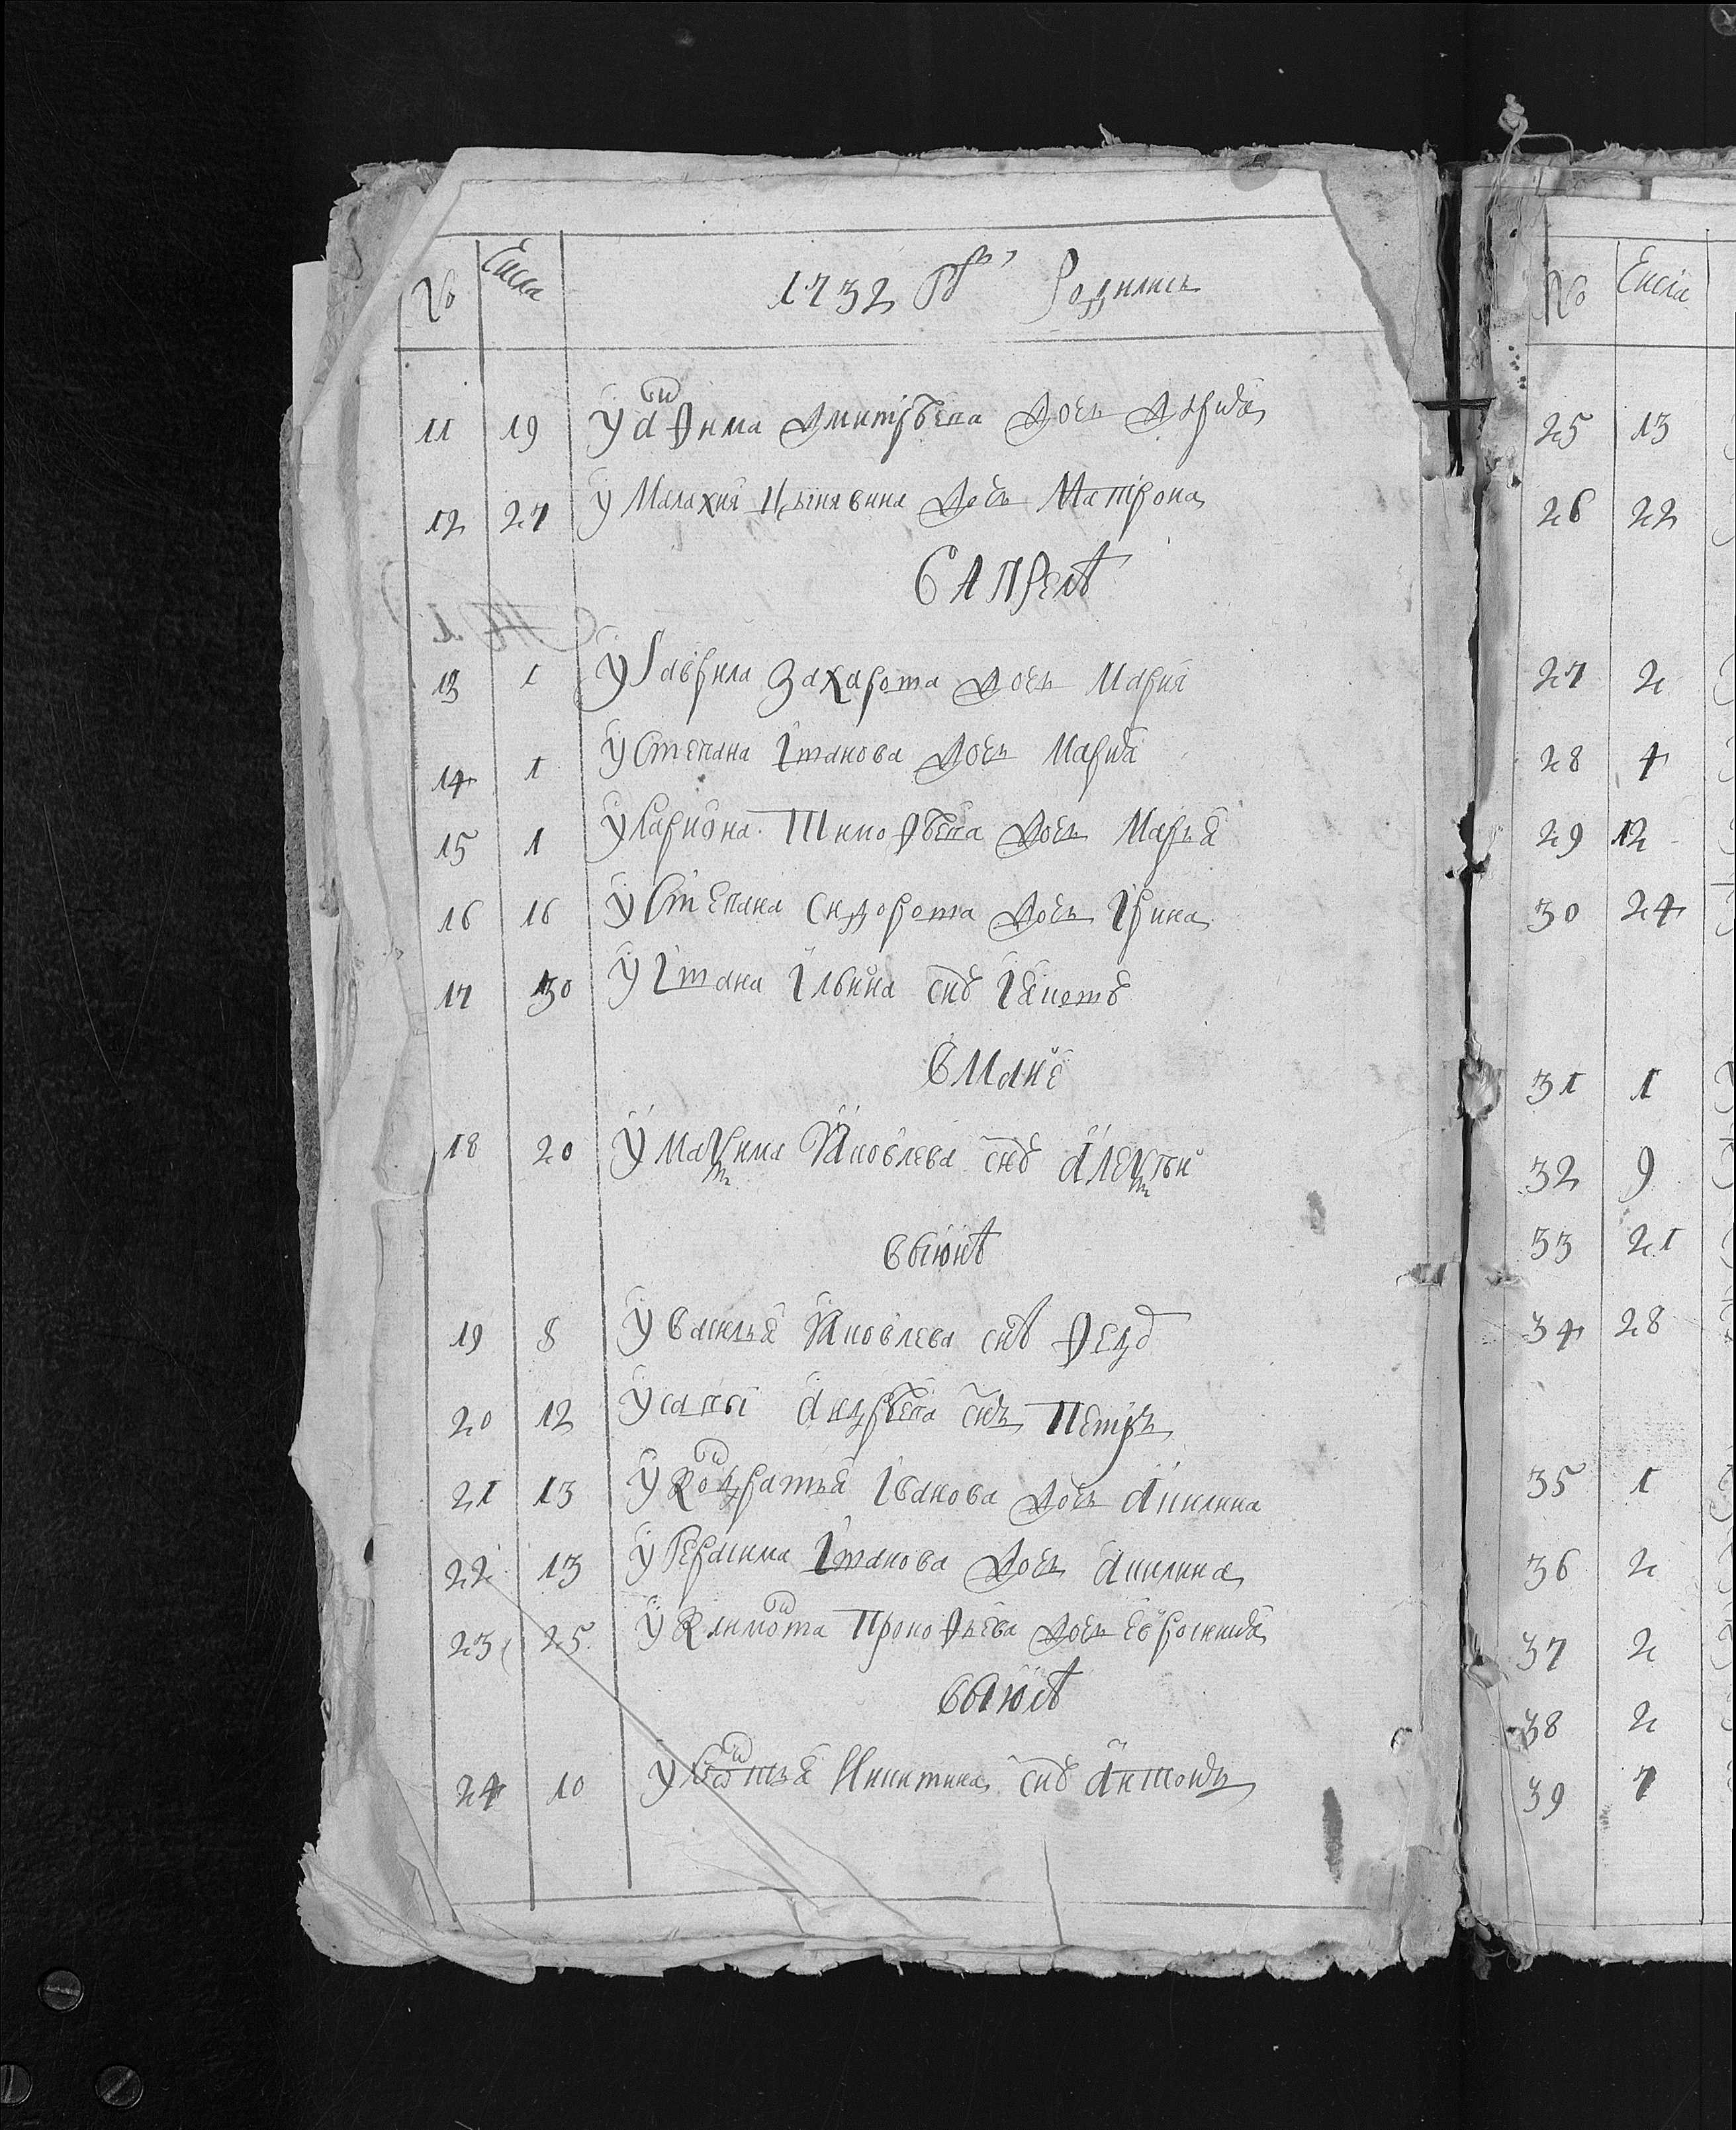 № Числа 1732 г҃ Родились
11 19 У анфима дмитрѣева дочь дариа
12 27 У Малахиа дочь Матрона
В АПРЕЛѢ
13 1 У Гаврила Захарова дочь Мариа
14 1 У Степана Iванова дочь Мариа
15 1 У Лариона Тимофѣева дочь Марья
16 16 У Степана Сидорова дочь Iрина
17 30 У Iвана Iльина сн҃ъ Iаковъ
В Маие
18 20 У Маѯима Яковлева сн҃ъ алеѯѣи
В ыюнѣ
19 8 У Василья Яковлева сн҃ъ Федо
20 12 У савы андрѣева сн҃ъ Петръ
21 13 У Кондратья Iванова дочь акилина
22 13 У Герасима Iванова дочь акилина
23 25 У Климонта Прокофьева дочь евросиниа
В ыюлѣ
24 10 У Никитина сн҃ъ антонъ
№ Числа
25 13
26 22
27 2
28 4
29 12
30 24
31 1
32 9
33 21
34 28
35 1
36 2
37 2
38 2
39 7